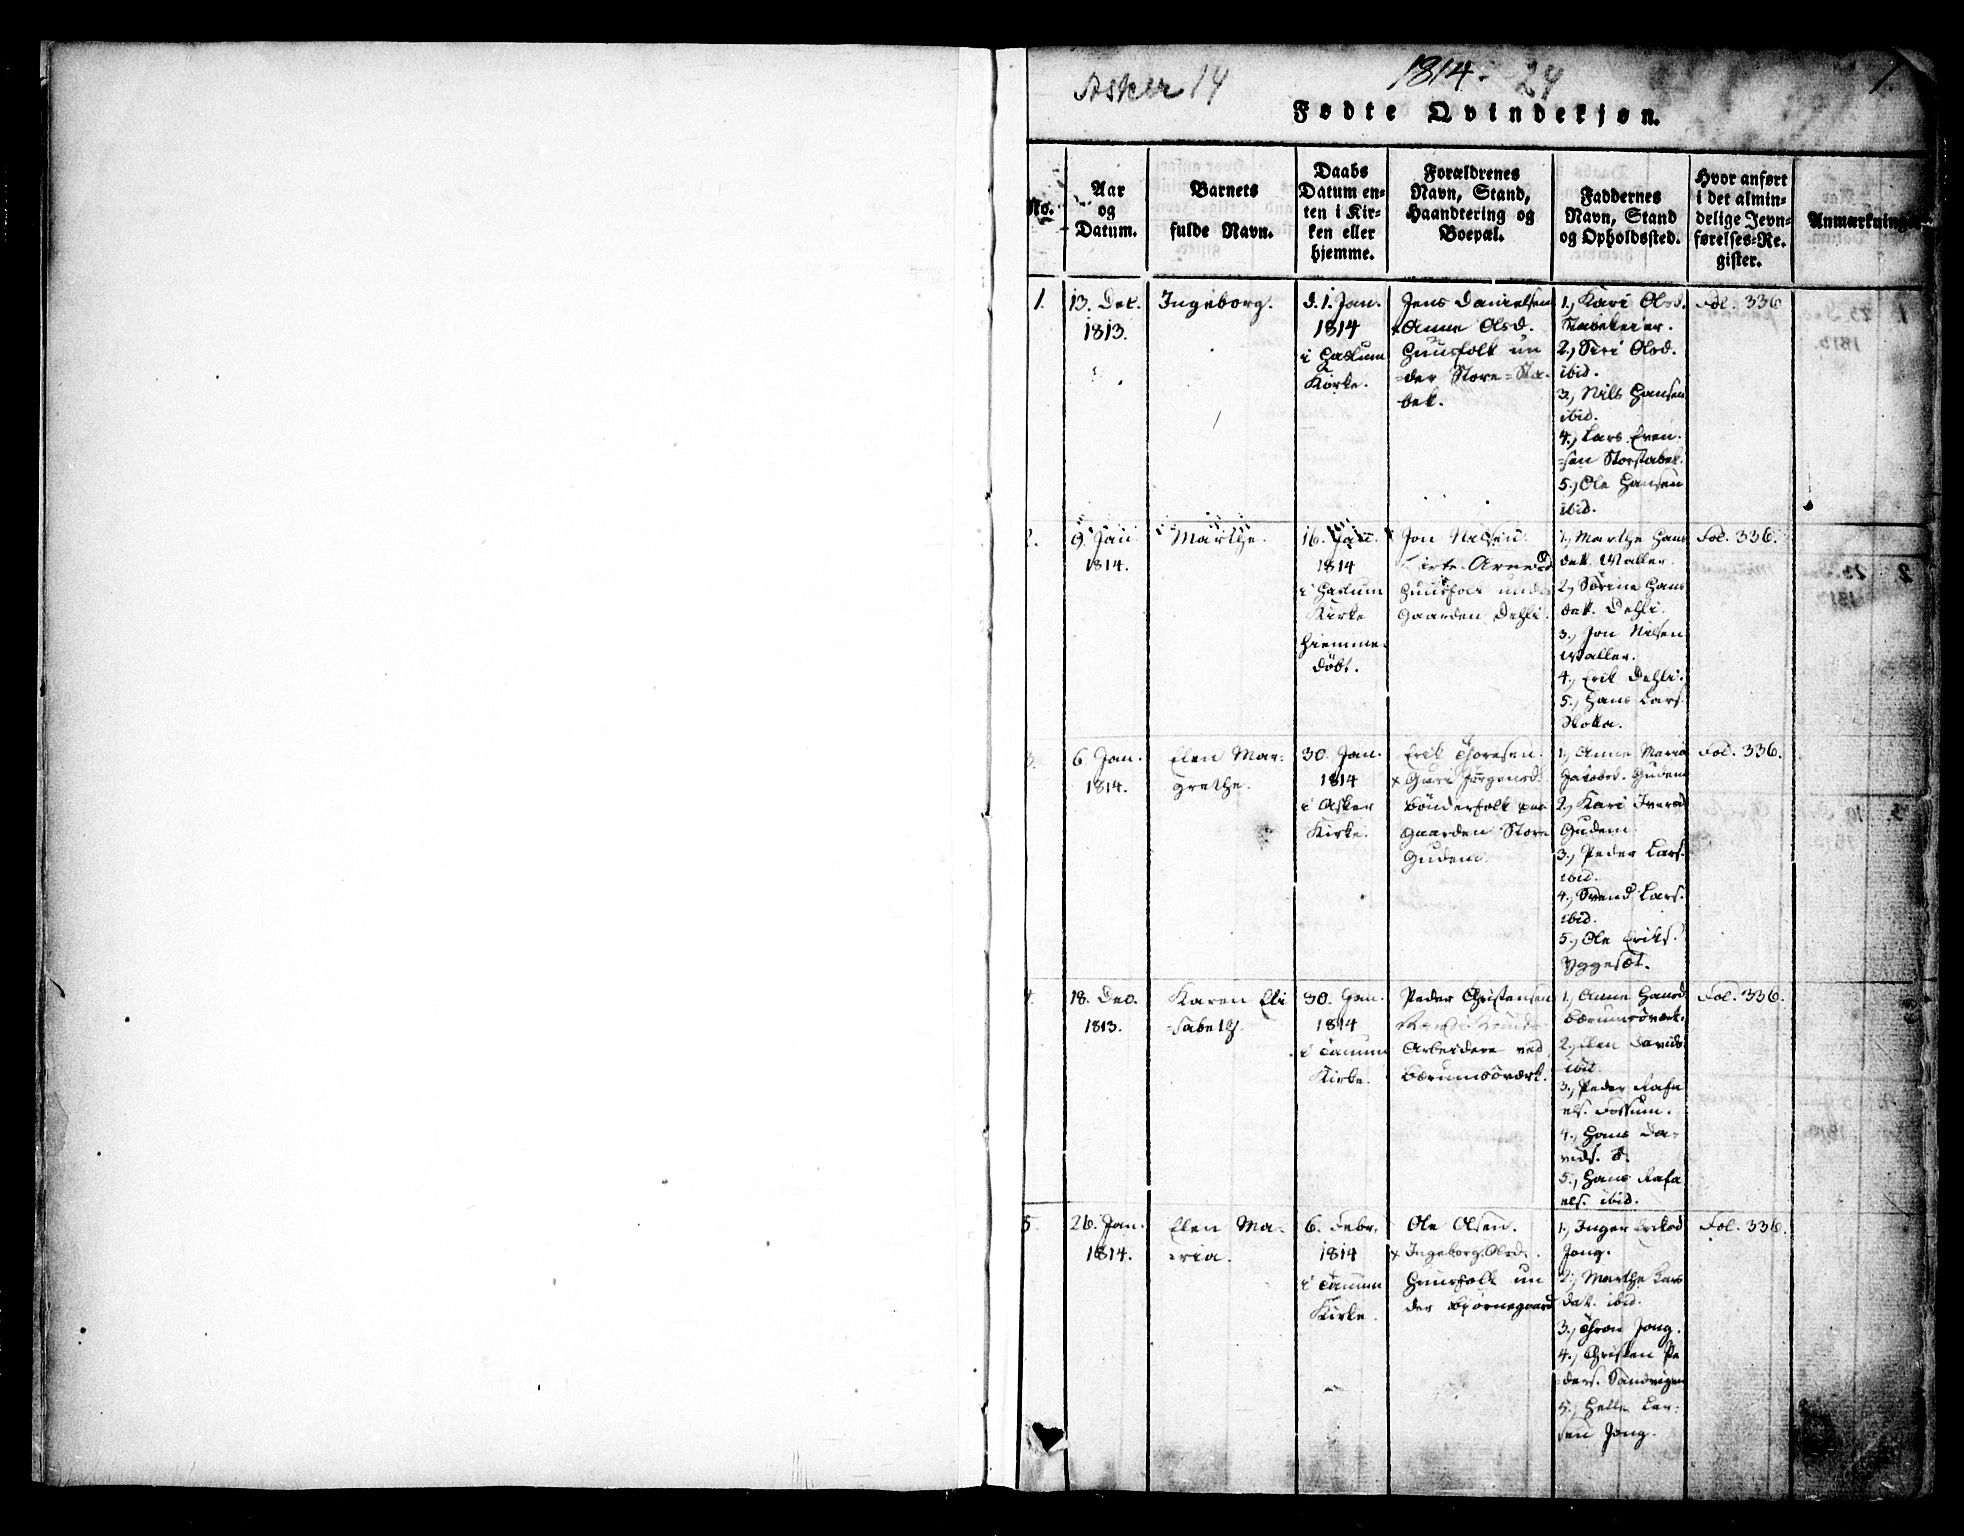 Asker 14 1814. 24 1.
Fødte Qvindekjøn.
No.
Aar
og
Datum.
Barnets
fulde Navn.
Daabs
Datum en-
ten i Kir-
ken eller
hjemme.
Forældrenes
Navn, Stand,
Haandtering og
Boepæl.
Faddernes
Navn, Stand
og Opholdssted.
Hvor anført
i det almin-
delige Jevn-
førelses-Re-
gister.
Anmærkning
1.
13. Dec.
1813.
Ingeborg.
d. 1. Jan.
1814
i Haslum
Kirke.
Jens Danielsen
Anne Olsd.
Huusfolk un
der Store-Sta-
bek.
1., Kari Olsd.
Stabekeier.
2., Siri Olsd.
ibid.
3., Nils Hansen
ibid.
4., Lars Even-
sen Storstabek.
5., Ole Hansen
ibid.
Fol. 336
2.
9. Jan.
1814.
Marthe.
16. Jan.
1814
i Haslum
Kirke
Hiemme-
døbt.
Jon Nilsen
Huusfolk under
Gaarden Dehli.
1., Marthe Hans
dat. Waller.
2., Sørine Hans
dat. Dehli.
3., Jon Nilsen
Waller.
4., Erik Dehli.
5., Hans Lars.
Fol. 336.
3.
6. Jan.
1814.
Elen Mar-
grethe.
30. Jan.
1814
i Asker
Kirke.
Erik Thoresen.
x Guri Jørgensd.
Bønderfolk paa
Gaarden Store
Gudem.
1., Anne Maria
Jacobsd. Gudem
2., Kari Iversd
Gudem
3., Peder Lars.
ibid.
4., Svend Lars.
ibid.
5., Ole Eriks.
Yggesæt.
Fol. 336.
4.
18. Dec.
1813.
Karen Eli
sabeth.
30. Jan.
1814
i Tanum
Kirke.
Peder Christensen
Arbeidere ved
Bærumsværk.
1., Anne Hansd
Bærumsværk.
2., Elen Davids.
ibid.
3., Peder Rafa
els. Fossum.
4., Hans Da-
vids.
5., Hans Rafa
els. ibid.
Fol. 336.
5.
26. Jan.
1814.
Elen Ma-
ria.
6. Febr.
1814
i Tanum
Kirke.
Ole Olsen.
x Ingeborg Olsd.
Huusfolk un
der Bjørnegaard
1., Inger Eriksd
Jong.
2., Marthe Lars
dat. ibid.
3., Thron Jong.
4., Christen Pe
ders. Sandvigen
5., Helle Lar-
sen Jong.
Fol. 336.